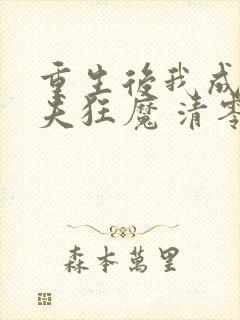 重生後我成
夫狂魔 清零
森本萬里